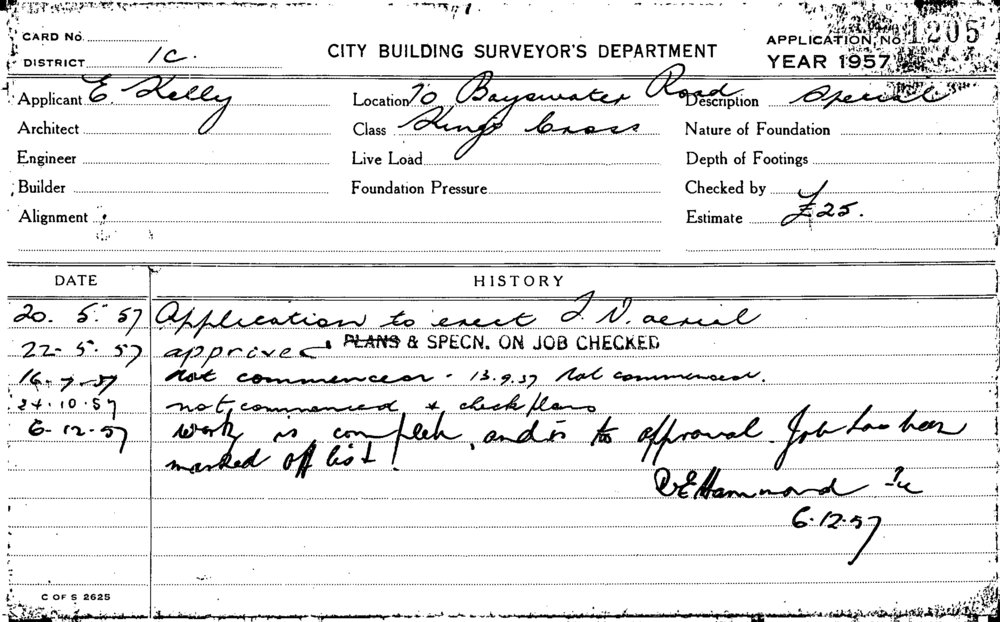 CARD No.
DISTRICT 1C.
CITY BUILDING SURVEYOR'S DEPARTMENT
APPLICATION No. 1205
YEAR 1957
Applicant E. Kelly
Location 70 Bayswater Road
Description Special
Architect
Class Kings Cross
Nature of Foundation
Engineer
Live Load
Depth of Footings
Builder
Foundation Pressure
Checked by
Alignment
Estimate £25.
DATE HISTORY
20. 5. 57 Application to erect T.V. aerial
22. 5. 57 approved PLANS & SPECN. ON JOB CHECKED
16-7-57 not commenced - 13.9.57 Not commenced.
24.10.57 not commenced & check plans
6-12-57 work is complete, and is to approval. Job has been
marked off list!
R E Hammond 1c
6.12.57
C OF S 2625